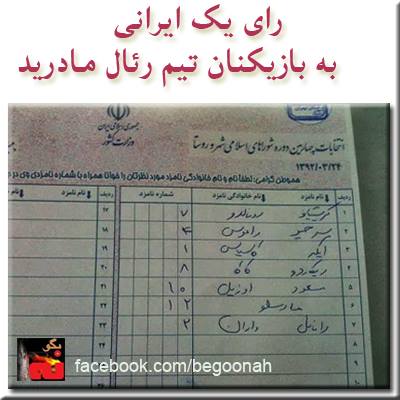 رای یک ایرانی
به بازیکنان تیم رئال مادرید
جمهوری اسلامی ایران
وزارت کشور
انتخابات چهارمین دوره شوراهای اسلامی شهر و روستا
۱۳۹۲/۰۳/۲۴
هموطن گرامی: لطفا نام و نام خانوادگی نامزد مورد نظرتان را خوانا همراه با شماره نامزدی وی در
ردیف نام نامزد نام خانوادگی نامزد شماره نامزد ردیف نام نامزد
۱ کریستیانو رونالدو ۷ ۱۷
۲ سرخیو راموس ۴ ۱۸
۳ ایکر کاسیاس ۱ ۱۹
۴ ریکاردو کاکا ۸ ۲۰
۵ مسعود اوزیل ۱۰ ۲۱
۶ مارسلو ۱۲ ۲۲
۷ رافائل واران ۲ ۲۳
۸ ۲۴
۹
۱۰
نگو نه
facebook.com/begoonah